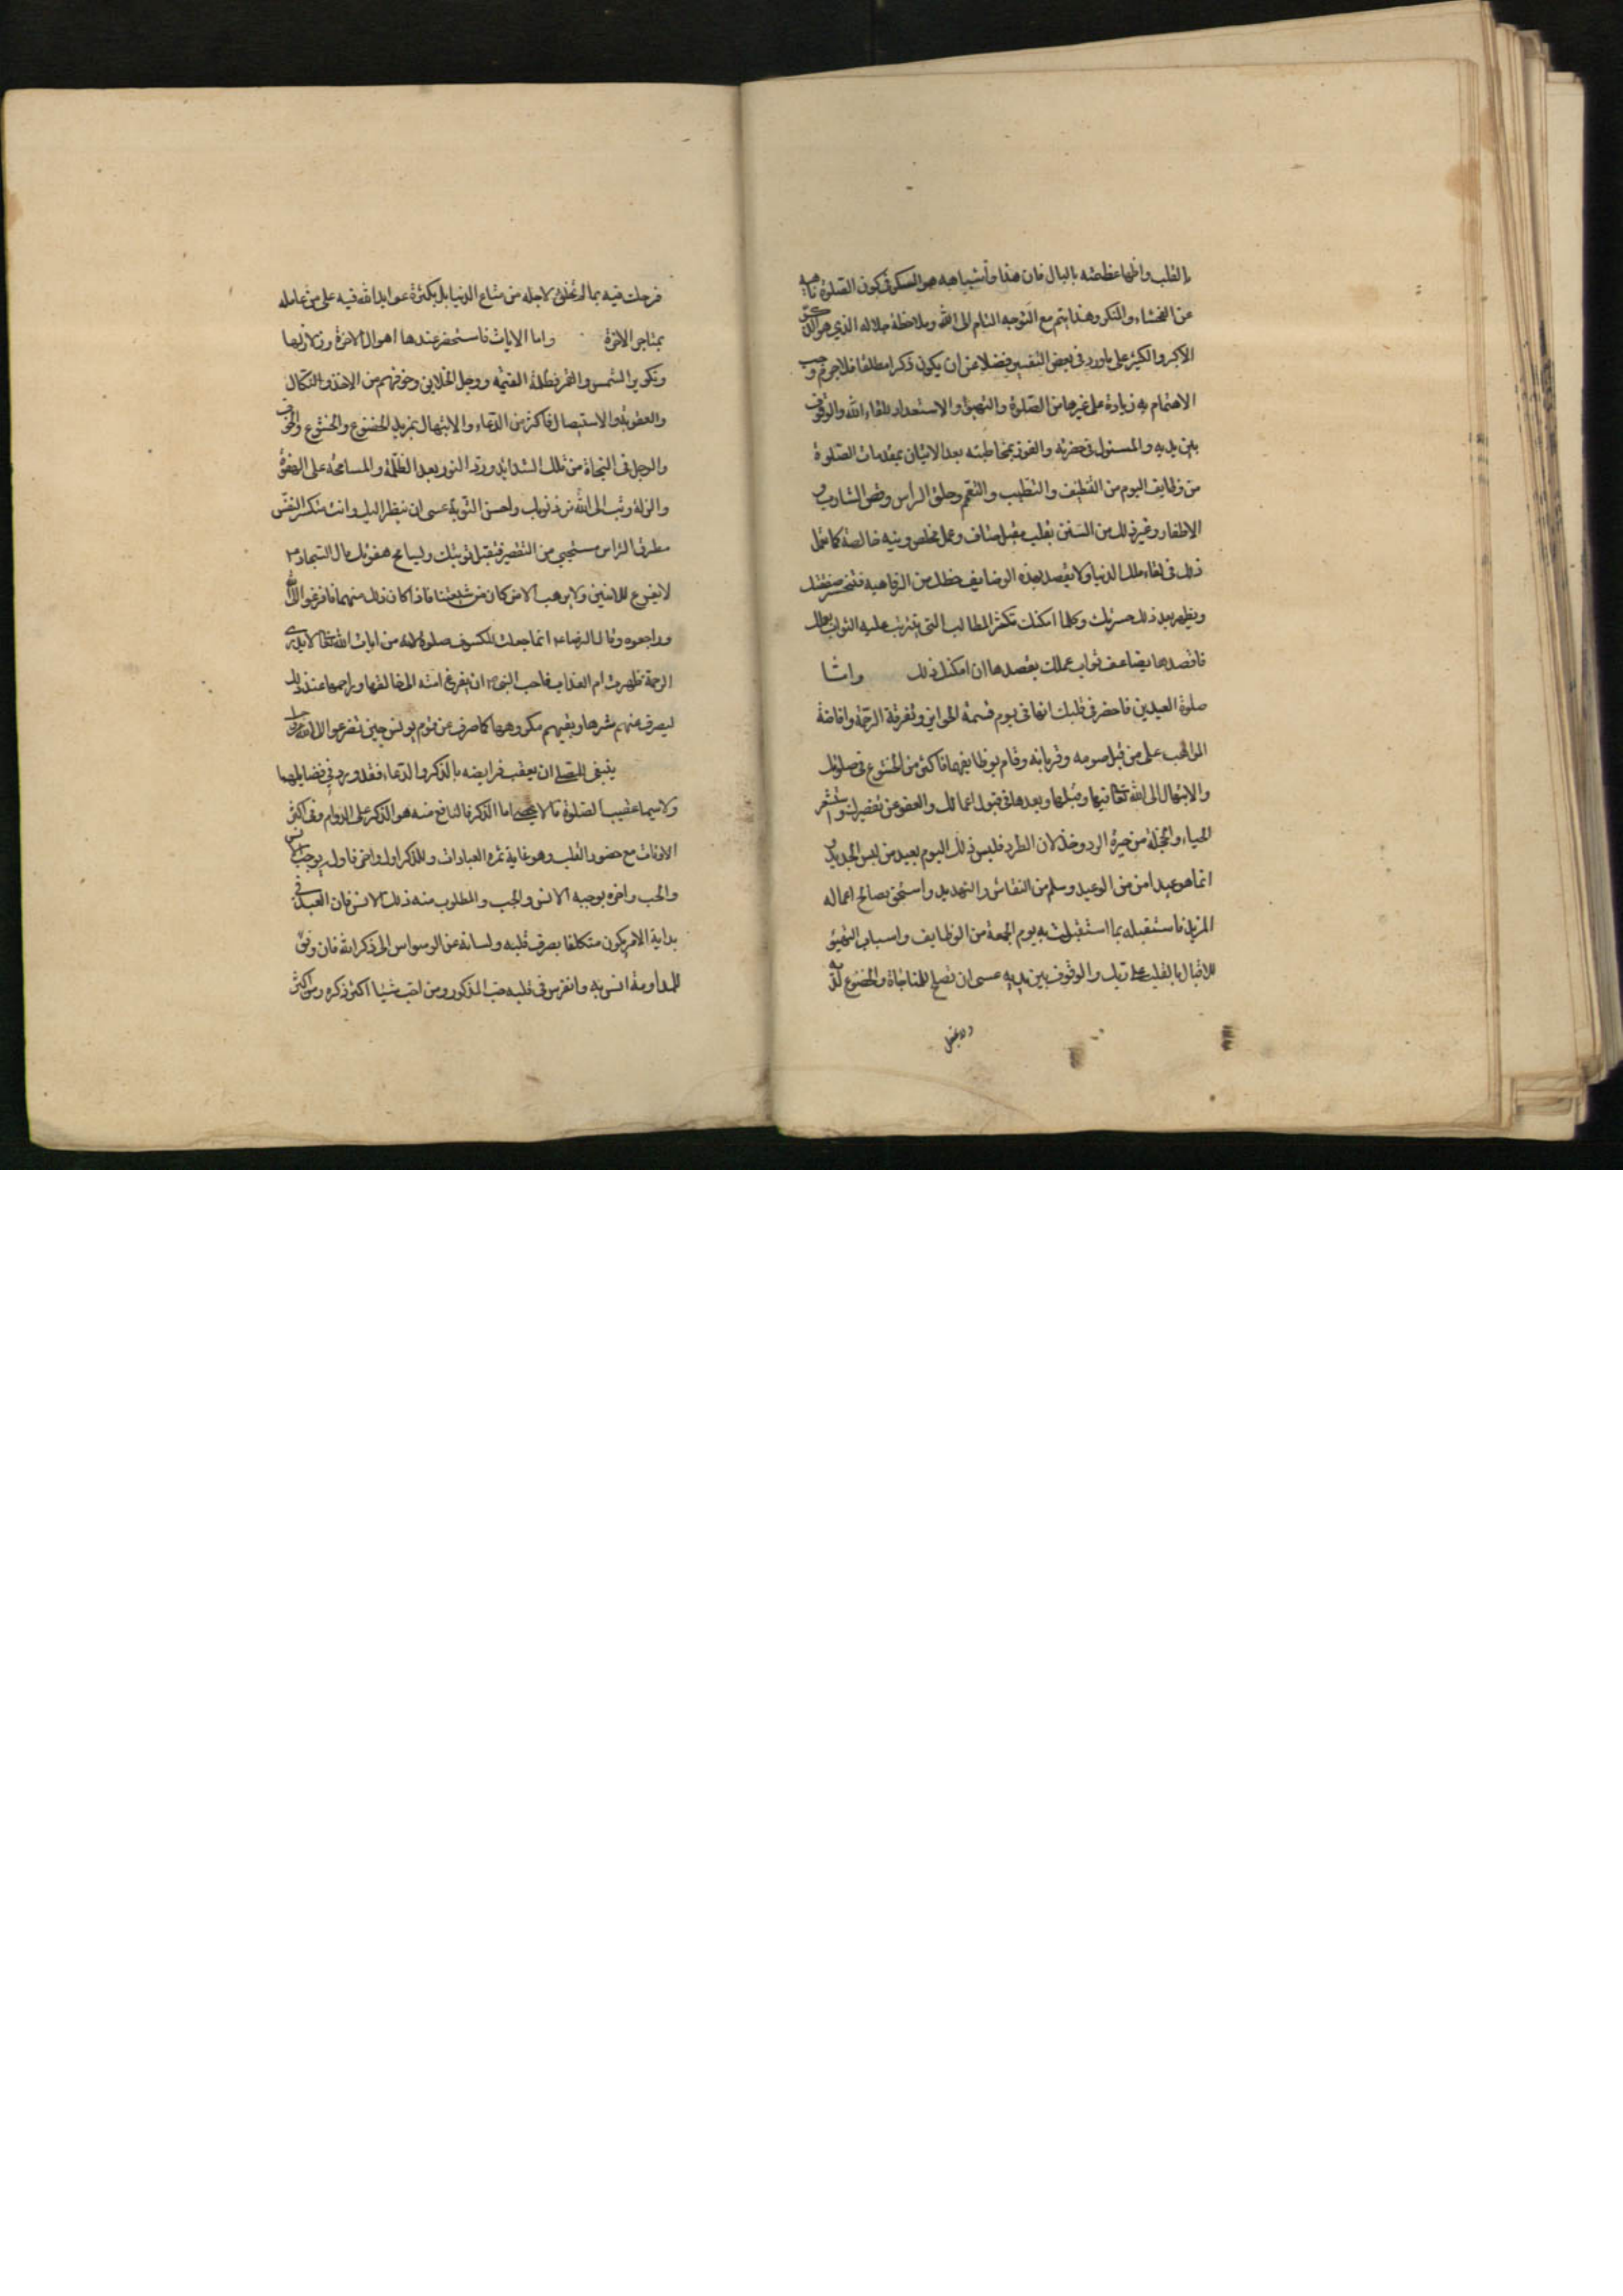 بالقلب واخطار عظمته بالبال فان هذا وأشباهه هو السر في كون الصلوة ناهية
عن الفحشاء والمنكر وهذا يتم مع التوجه التام الى الله وملاحظة جلاله الذي هو الذكر
الأكبر والكثير على ما ورد في بعض التفسير فضلا عن ان يكون ذكرا مطلقا فلا جرم وجب
الاهتمام به زيادة على غيرها من الصلوة والتهيؤ والاستعداد للقاء الله والوقوف
بين يديه والمسئول في حضرته والفوز بمخاطبته بعد الاتيان بمقدمات الصلوة
من وظايف اليوم من التنظيف والتطيب والتعمم وحلق الرأس وقص الشارب و
الاظفار وغير ذلك من السنن بقلب مقبل صاف وعمل مخلص ونية خالصة كما تعمل
ذلك في لقاء ملك الدنيا ولا تقصد بهذه الوضايف حظك من الرفاهية فتخسر صفقتك
ويظهر بعد ذلك حسرتك وكلما امكنك تكثر المطالب التي يترتب عليه الثواب
فاقصدها يضاعف ثواب عملك بقصدها ان امكنك ذلك واما
صلوة العيدين فاحضر في قلبك انها في يوم قسمة الجوايز وتفرقة الرحمة وافاضة
المواهب على من قبل صومه وقربانه وقام بوظايفها فاكثر من الخشوع في صلوتك
والابتهال الى الله تعالى فيها وقبلها وبعدها في قبول اعمالك والعفو عن تقصيرك واستشعر
الحياء والخجلة من حيرة الرد وخذلان الطرد فليس ذلك اليوم بعيد من لبس الجديد و
انما هو عيد امن من الوعيد وسلم من النقاش والتهديد واستحق بصالح اعماله
المزيد فاستقبله بما استقبلت به يوم الجمعة من الوظايف واسباب التهيؤ
للاقبال بالقلب على ربك والوقوف بين يديه عسى ان تصلح للمناجاة والخضوع لديه
فرحك فيه بما لم تخلق لاجله من متاع الدنيا بل بكثرة عوايد الله فيه على من عامله
بمتاجر الاخرة واما الايات فاستحضر عندها اهوال الاخرة وزلازلها
وتكوير الشمس والقمر وظلمة القيمة ووجل الخلايق وخوفهم من الاخذ والنكال
والعقوبة والاستيصال فاكثر من الدعاء والابتهال بمزيد الخضوع والخشوع والخوف
والوجل في النجاة من تلك الشدايد ورد النور بعد الظلمة والمسامحة على الهفوة
والزلة وتب الى الله من ذنوبك واحسن التوبة عسى ان ينظر اليك وانت منكسر النفس
مطرق الراس مستحيي من التقصير فيقبل توبتك ويسامح هفوتك قال السجاد ع
لا يفزع للايتين ولا يرهب الا من كان من شيعتنا فاذا كان ذلك منهما فافزعوا الى الله
وراجعوه وقال الرضا ع انما جعلت للكسوف صلوة لانه من ايات الله تعالى لا يدرى
الرحمة ظهرت ام العذاب فاحب النبي ص ان يفزع امته الى خالقها وراحمها عند ذلك
ليصرف عنهم شرها ويقيهم مكروهها كما صرف عن قوم يونس حين تضرعوا الى الله عز وجل
ينبغي للمصلي ان يعقب فرايضه بالذكر والدعاء فقد ورد في فضايلهما
ولاسيما عقيب الصلوة ما لا يحصى اما الذكر فالنافع منه هو الذكر على الدوام وفي اكثر
الاوقات مع حضور القلب وهو غاية ثمرة العبادات وللذكر اول واخر فاوله يوجب الانس
والحب واخره يوجبه الانس والحب والمطلوب منه ذلك الانس فان العبد في
بداية الامر يكون متكلفا بصرف قلبه ولسانه عن الوسواس الى ذكر الله فان وفق
للمداومة انس به وانغرس في قلبه حب المذكور ومن احب شيئا اكثر ذكره ومن اكثر